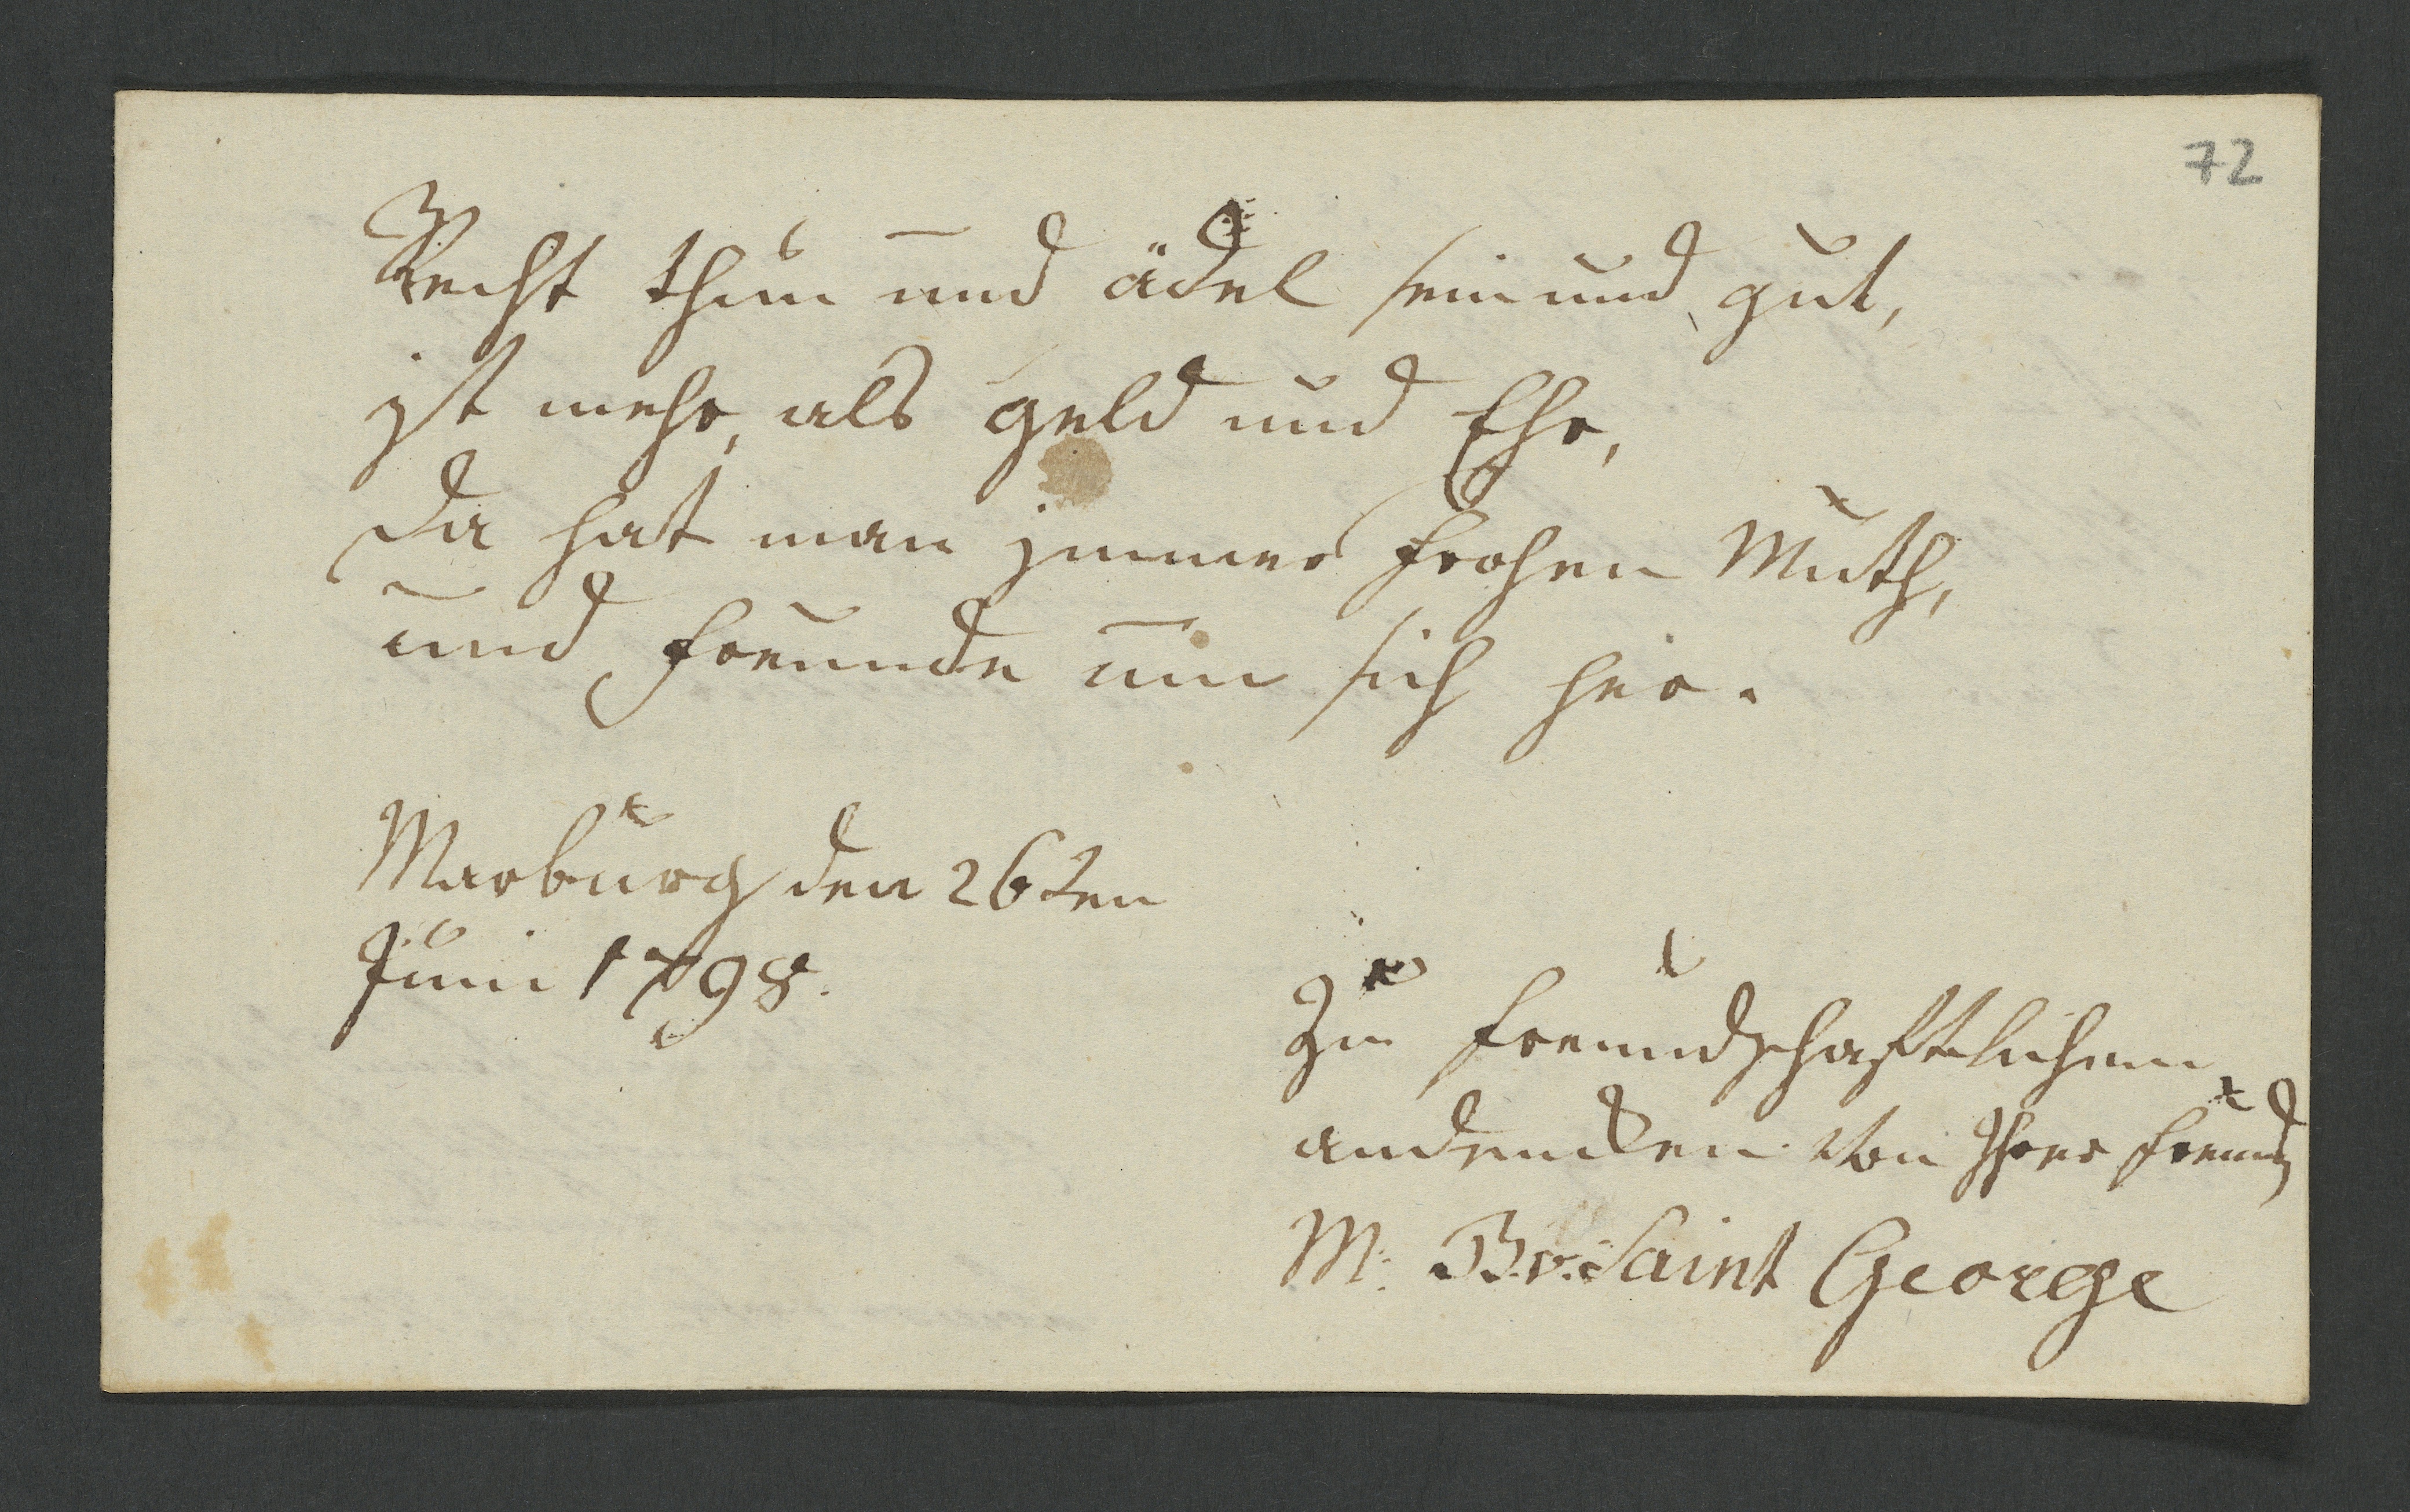 72
Recht thun und ädel sein und gut,
ist mehr, als geld und Ehr,
Da hat man jmmer frohen Muth,
und freunde um sich her.
Marburg den 26ten
Juni 1798.
Zu freundschaftlichem
andencken von Ihrer freund
M: B. v. Saint George